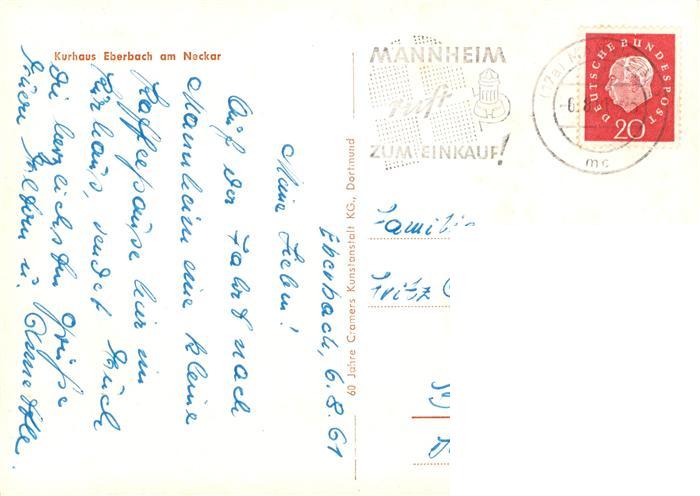 Kurhaus Eberbach am Neckar
Eberbach, 6.8.61
Meine Lieben!
Auf der Fahrt nach
Mannheim eine kleine
Kaffeepause hier im
Kurhaus, sendet Euch
die herzlichsten Grüße
Eltern u.
60 Jahre Cramers Kunstanstalt KG., Dortmund
MANNHEIM
ruft
ZUM EINKAUF!
DEUTSCHE BUNDESPOST
20
mc
Familie
Fritz